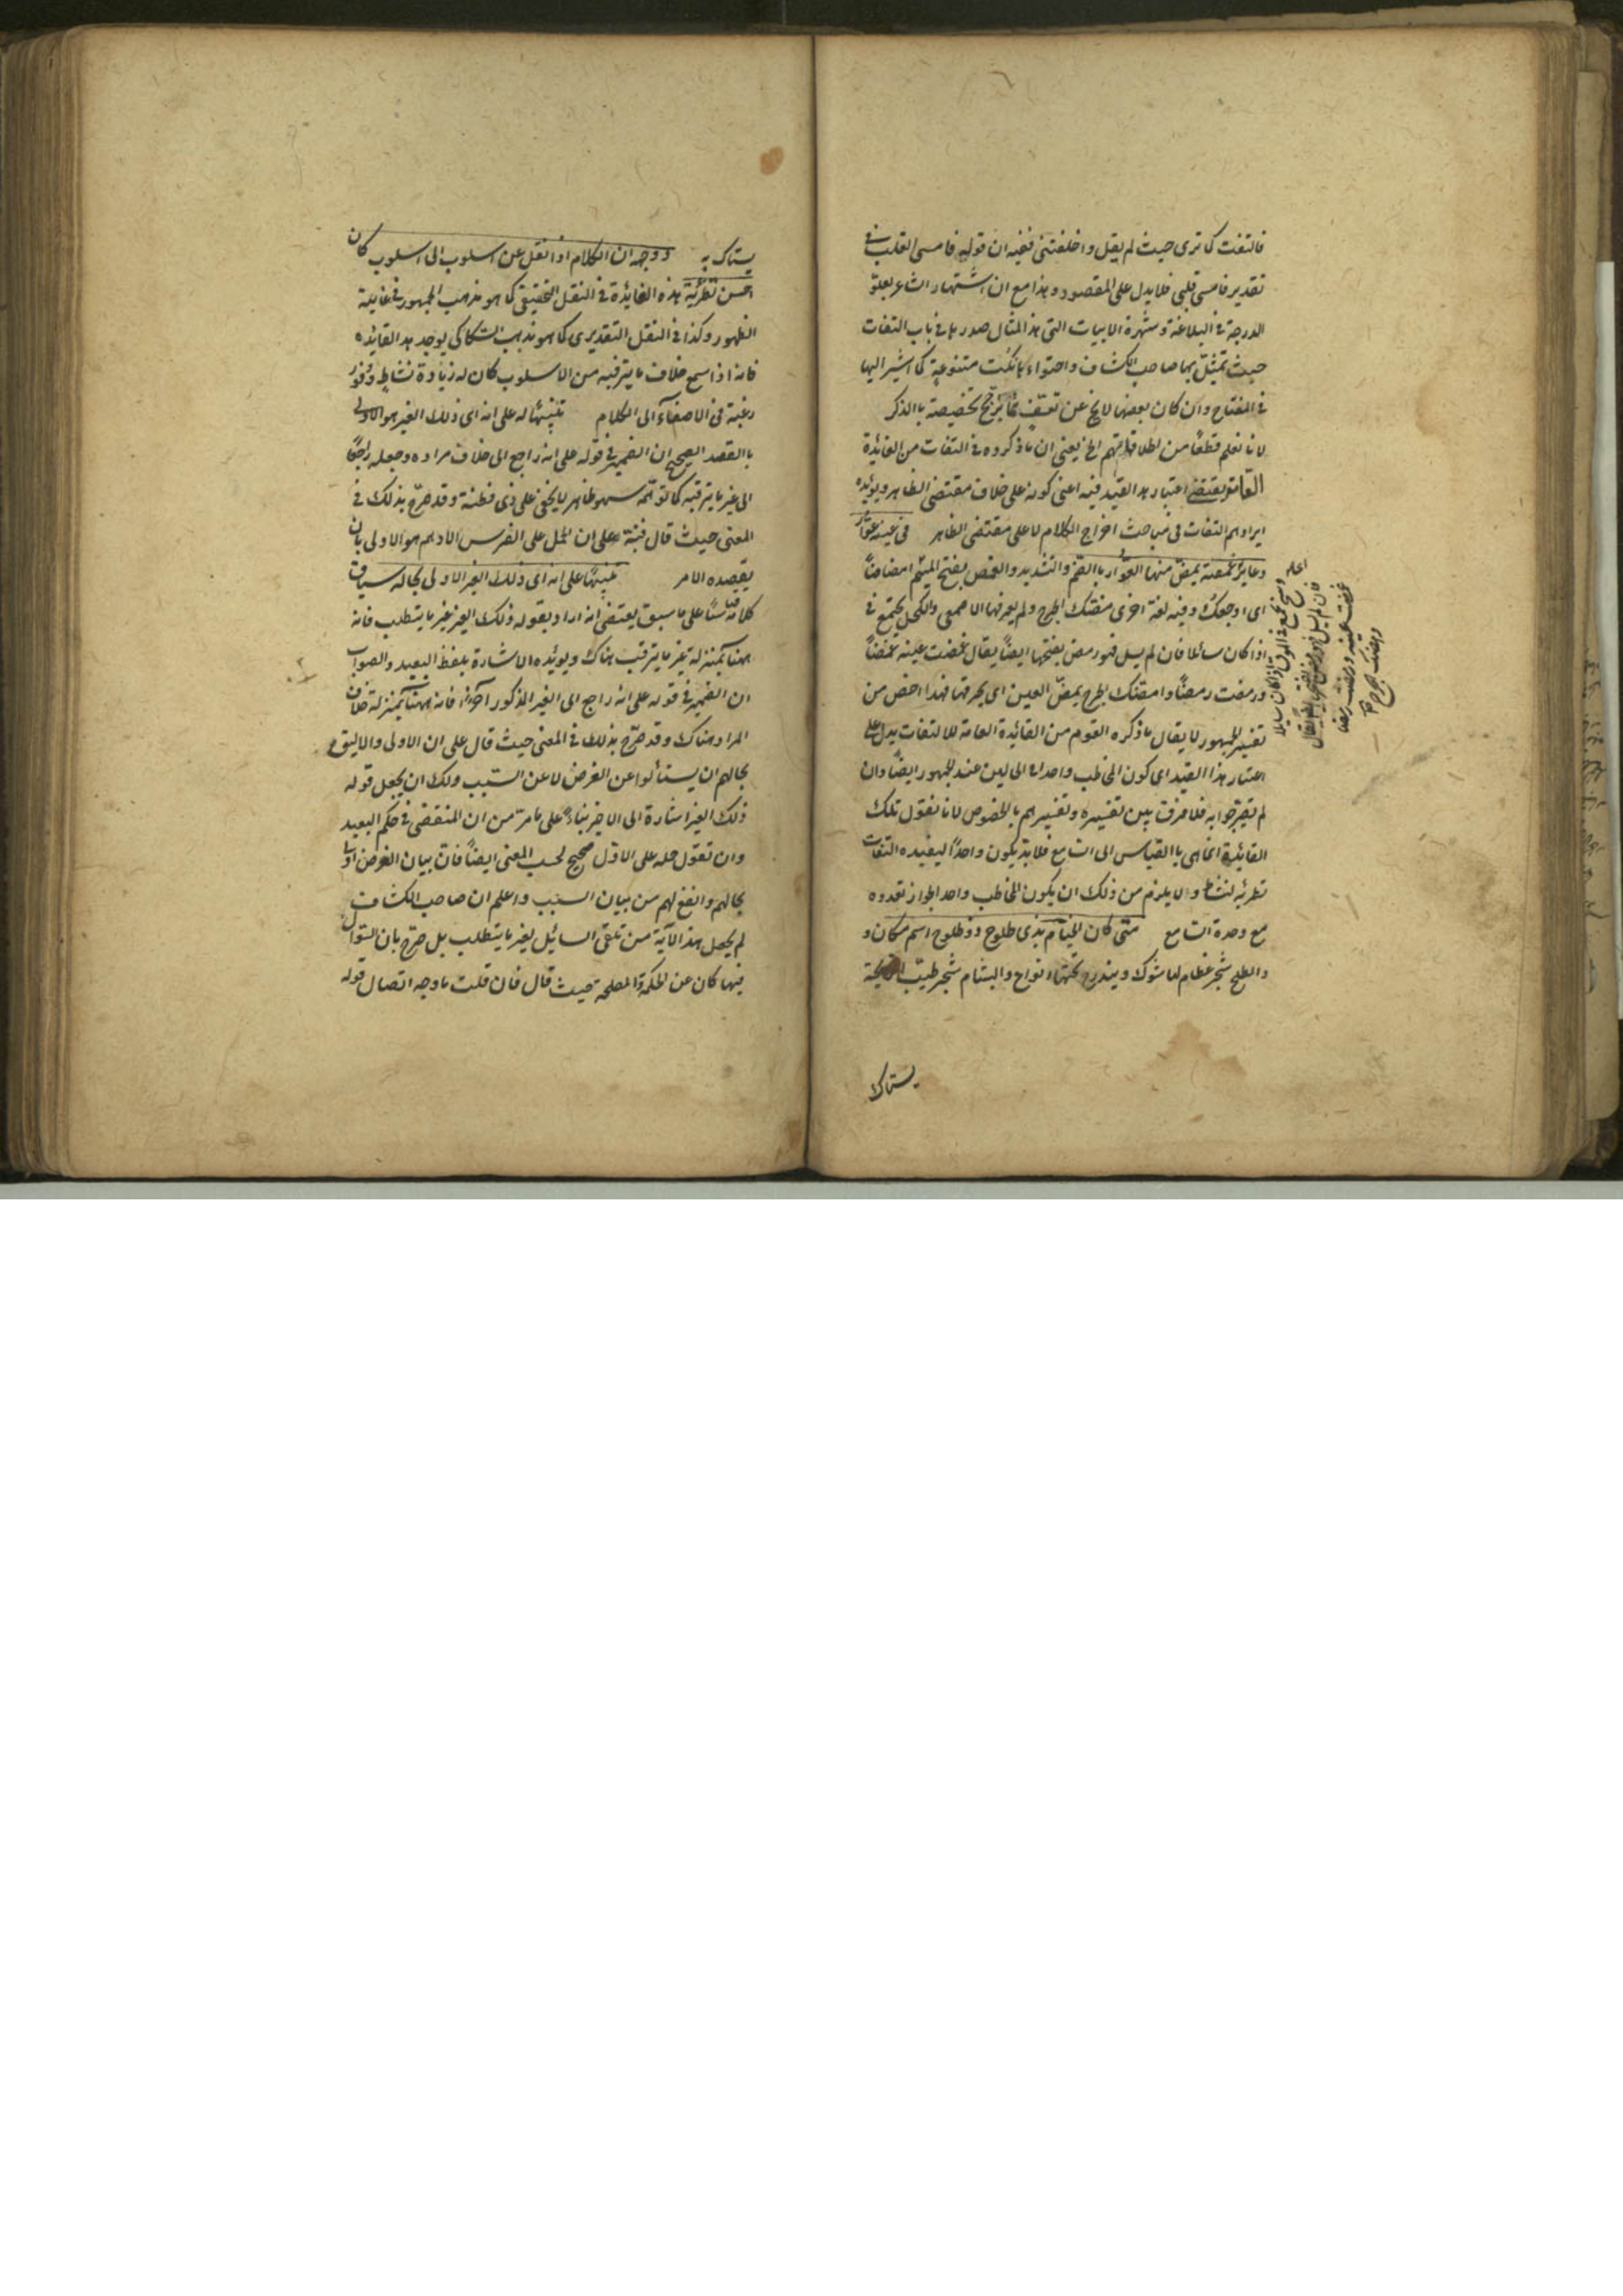 فالتفت كما ترى حيث لم يقل واخلفتنى ففيه ان قوله فامسى القلب فى
تقدير فامسى قلبى فلا يدل على المقصود وهذا مع ان اشتهار الشاعر بعلو
الدرجة فى البلاغة وشهرة الابيات التى هذا المثال صدرها فى باب التفات
حيث تمثل بها صاحب الكشاف واحتواءها نكت متنوعة كما اشير اليها
فى المفتاح وان كان بعضها لا يخ عن تعسف مما يرجح تخصيصه بالذكر
لانا نعلم قطعًا من اطلاقاتهم الخ يعنى ان ما ذكروه فى التفات من الفائدة
العامة يقتضى اعتبار هذا القيد فيه اعنى كونه على خلاف مقتضى الظاهر ويؤيده
ايرادهم التفات فى مباحث اخراج الكلام لا على مقتضى الظاهر فى عينه عوار
وعاير غمصة يمض منها العوار بالضم والتشديد والغمص بفتح الميم امضامضًا
اى اوجعك وفيه لغة اخرى مضتك الجرح ولم يعرفها الاصمعى والكحل يجتمع فى
اذا كان سائلا فان لم يسل فهو رمص بفتحها ايضًا يقال غمصت عينه غمصًا
ورمصت رمصًا وامضتك الجرح يمض العين اى يحرقها فهذا اخص من
تفسير الجمهور لا يقال ما ذكره القوم من الفائدة العامة للالتفات يدل على
اعتبار هذا القيد اى كون المخاطب واحدا فى الحالين عند الجمهور ايضًا وان
لم يصرحوا به فلا فرق بين تفسيره وتفسيرهم بالخصوص لانا نقول تلك
الفائدة انما هى بالقياس الى السامع فلا بد يكون واحدًا ليفيده التفات
تطرئة لنشاط ولا يلزم من ذلك ان يكون المخاطب واحدا لجواز تعدده
مع وحدة السامع متى كان الخيام بذى طلوح ذو طلوح اسم مكان و
والطلح شجر عظام لها شوك ويندرج تحتها انواع والبشام شجر طيب الرايحة
يستاك
يستاك به ووجهه ان الكلام اذا نقل عن اسلوب الى اسلوب كان
احسن تطرية هذه الفائدة فى النقل التحقيقى كما هو مذهب الجمهور فى غاية
الظهور وكذا فى النقل التقديرى كما هو مذهب السكاكى يوجد هذه الفائدة
فانه اذا سمع خلاف ما يترقبه من الاسلوب كان له زيادة نشاط ووفور
رغبة فى الاصغاء الى الكلام تنبيهًا له على انه اى ذلك الغير هو الاولى
بالقصد الصحيح ان الضمير فى قوله على انه راجع الى خلاف مراده وجعله راجعًا
الى غير ما يترقبه كما توهمه سهو ظاهر لا يخفى على ذى فطنة وقد صرح بذلك فى
المعنى حيث قال فنبه على ان الحمل على الفرس الادهم هو الاولى بان
يقصده الامر تنبيهًا على انه اى ذلك الغير الاولى بحاله سياق
كلامه بناء على ما سبق يقتضى انه اراد بقوله ذلك الغير غير ما يتطلب فانه
ههنا بمنزلة غير ما يترقب هناك ويؤيده الاشارة بلفظ البعيد والصواب
ان الضمير فى قوله على انه راجع الى الغير المذكور آخرًا فانه ههنا بمنزلة خلاف
المراد هناك وقد صرح بذلك فى المعنى حيث قال على ان الاولى والاليق
بحالهم ان يسئلوا عن الغرض لا عن السبب ولك ان يجعل قوله
ذلك الغير اشارة الى الاخير بناء على ما مر من ان المنقضى فى حكم البعيد
وان تقول حمله على الاول صحيح لحسب المعنى ايضًا فان بيان الغرض اولى
بحالهم وانفع لهم من بيان السبب واعلم ان صاحب الكشاف
لم يجعل هذا الآية من تلقى السائل بغير ما يتطلب بل صرح بان السؤال
فيها كان عن الحكمة والمصلحة حيث قال فان قلت ما وجه اتصال قوله